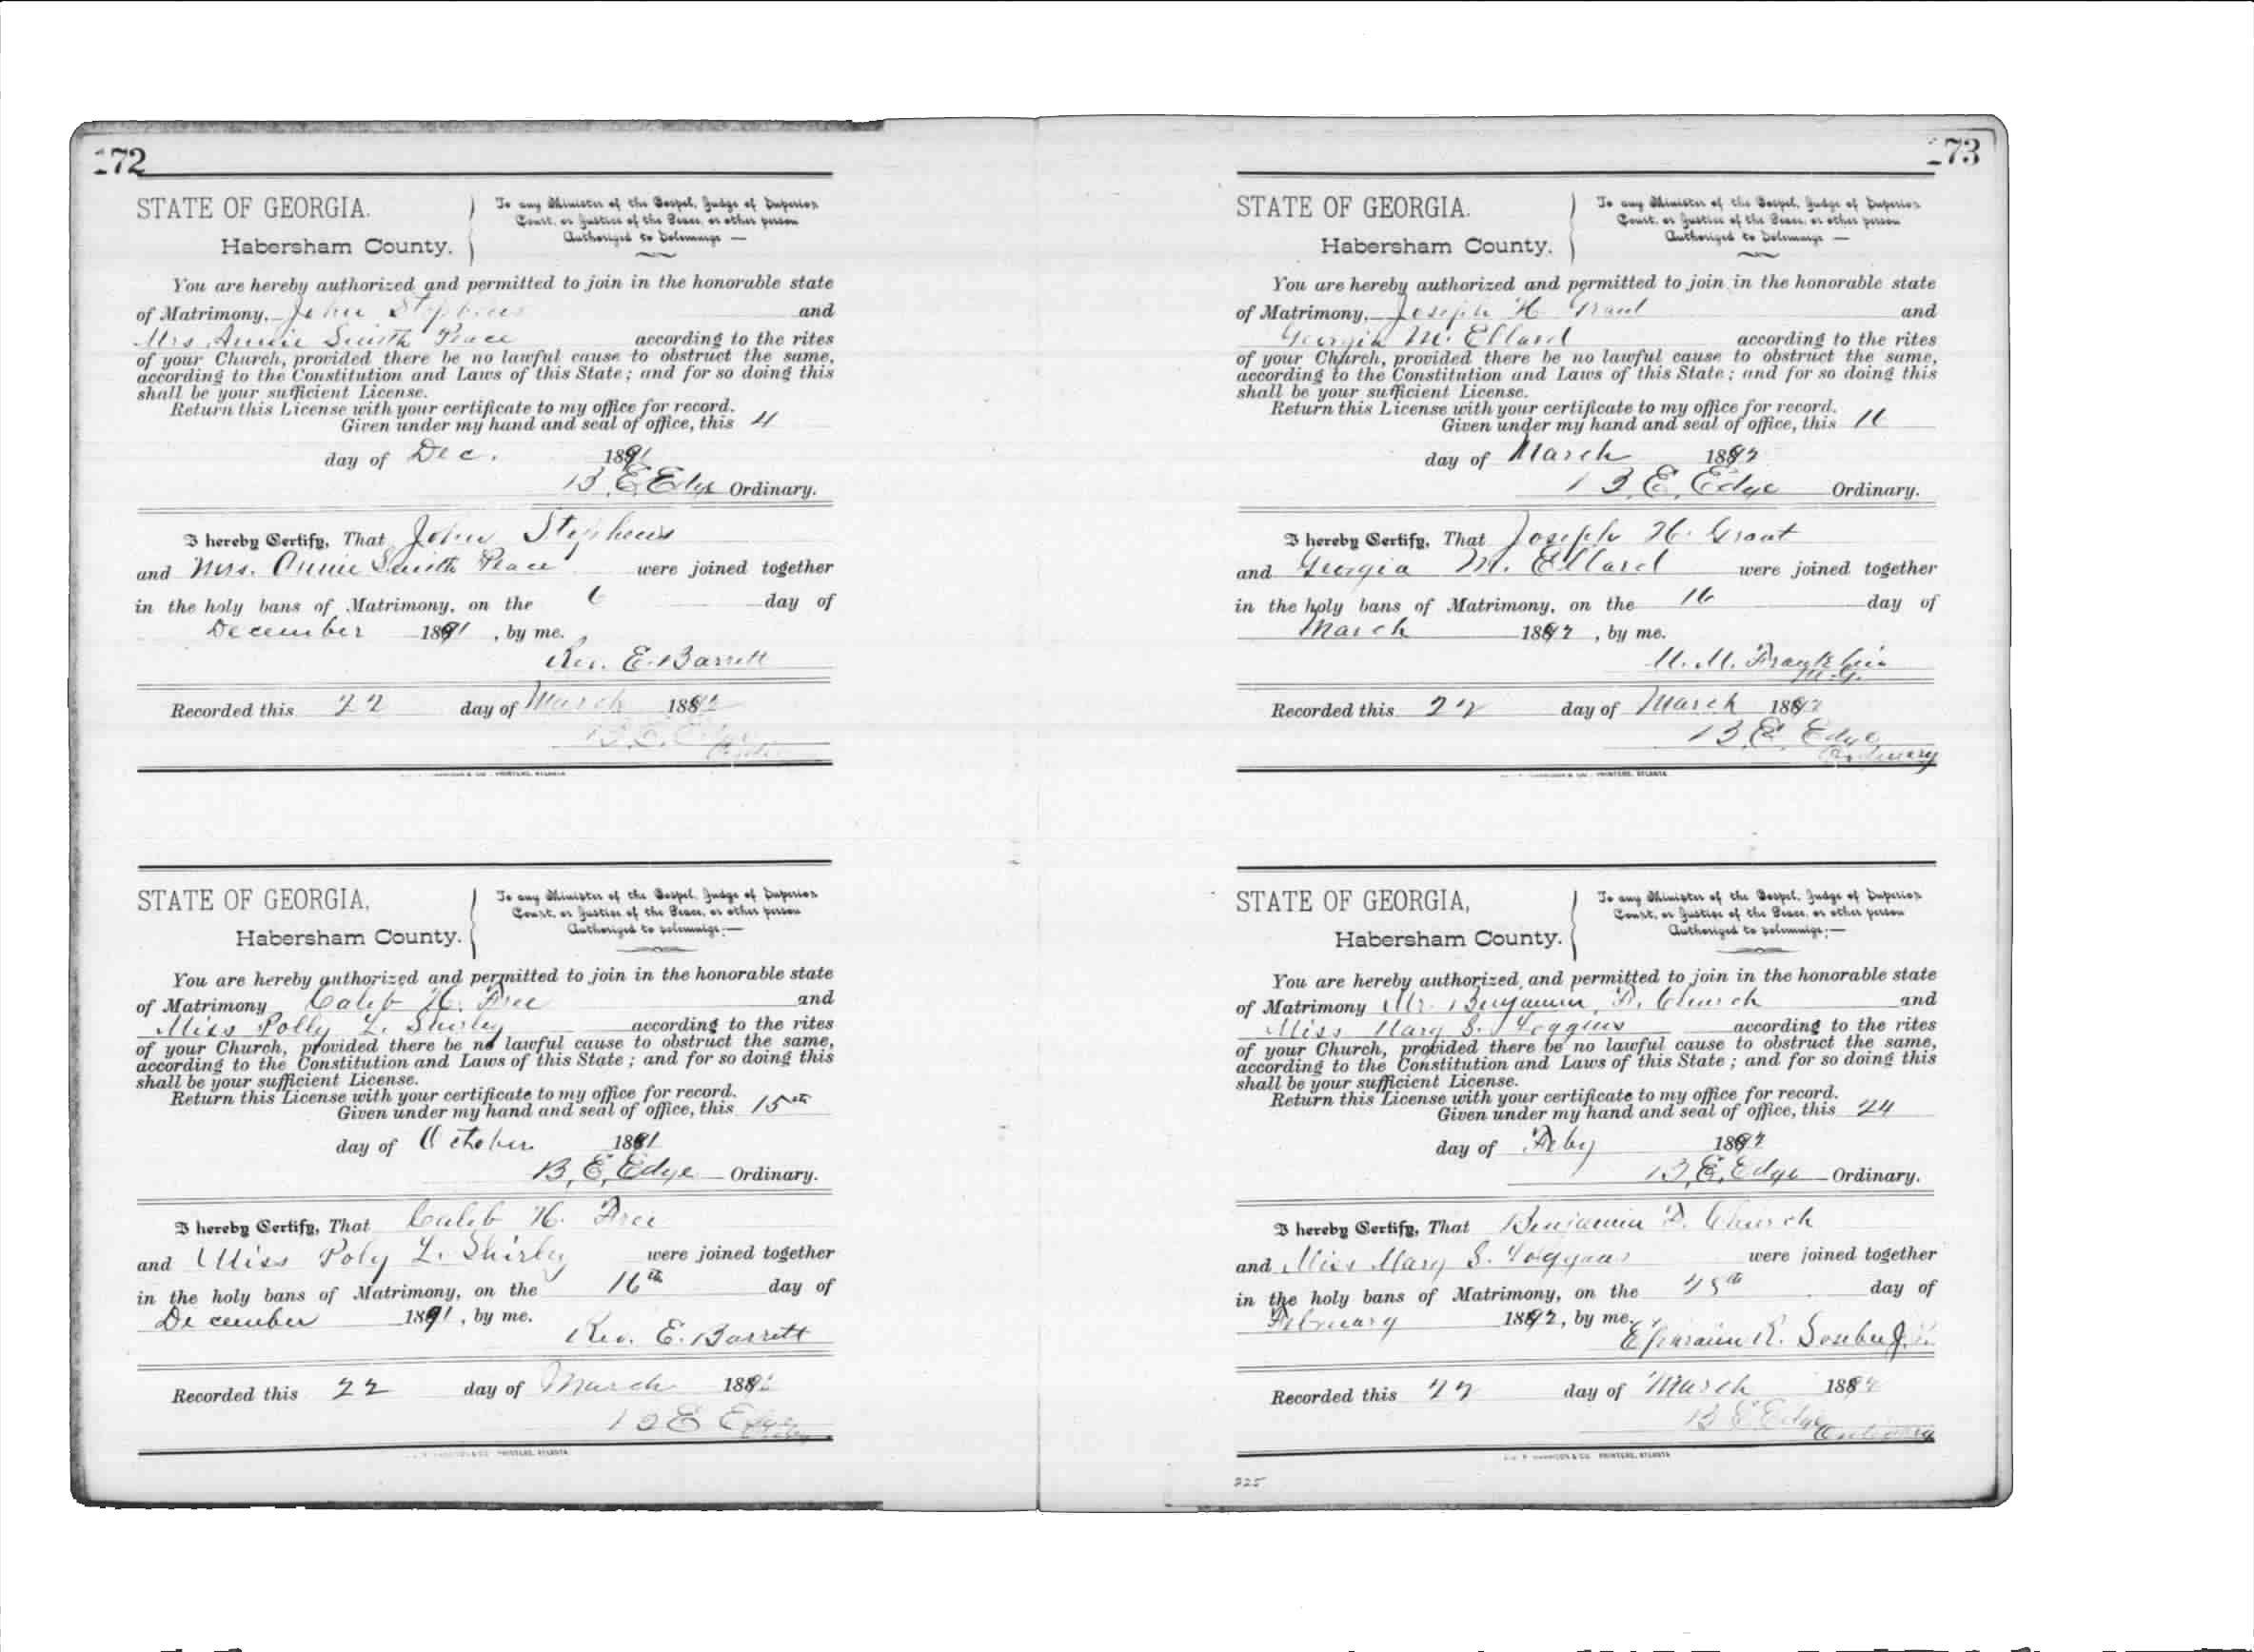 172
STATE OF GEORGIA.
Habersham County.
To any Minister of the Gospel, Judge of Superior
Court, or Justice of the Peace, or other person
Authorized to Solemnize —
You are hereby authorized and permitted to join in the honorable state
of Matrimony, John Stephens and
Mrs Annie Smith Peace according to the rites
of your Church, provided there be no lawful cause to obstruct the same,
according to the Constitution and Laws of this State; and for so doing this
shall be your sufficient License.
Return this License with your certificate to my office for record.
Given under my hand and seal of office, this 4
day of Dec. 1891
B. E. Edge Ordinary.
I hereby Certify, That John Stephens
and Mrs. Annie Smith Peace were joined together
in the holy bans of Matrimony, on the 6 day of
December 1891, by me.
Rev. E. Barrett
Recorded this 22 day of March 1892
B. E. Edge
STATE OF GEORGIA,
Habersham County.
To any Minister of the Gospel, Judge of Superior
Court, or Justice of the Peace, or other person
Authorized to solemnize;—
You are hereby authorized and permitted to join in the honorable state
of Matrimony Caleb H. Free and
Miss Polly L. Shirley according to the rites
of your Church, provided there be no lawful cause to obstruct the same,
according to the Constitution and Laws of this State; and for so doing this
shall be your sufficient License.
Return this License with your certificate to my office for record.
Given under my hand and seal of office, this 15th
day of October 1891
B, E, Edge Ordinary.
I hereby Certify, That Caleb H. Free
and Miss Poly L. Shirley were joined together
in the holy bans of Matrimony, on the 16th day of
December 1891, by me.
Rev. E. Barrett
Recorded this 22 day of March 1892
B E Edge
173
STATE OF GEORGIA.
Habersham County.
To any Minister of the Gospel, Judge of Superior
Court, or Justice of the Peace, or other person
Authorized to Solemnize —
You are hereby authorized and permitted to join in the honorable state
of Matrimony, Joseph H. Grant and
Georgia M. Ellard according to the rites
of your Church, provided there be no lawful cause to obstruct the same,
according to the Constitution and Laws of this State; and for so doing this
shall be your sufficient License.
Return this License with your certificate to my office for record.
Given under my hand and seal of office, this
day of March 1892
B. E. Edge Ordinary.
I hereby Certify, That Joseph H. Grant
and Georgia M. Ellard were joined together
in the holy bans of Matrimony, on the 16 day of
March 1892, by me.
Franklin
M.G.
Recorded this 22 day of March 1892
B. E. Edge
Ordinary
STATE OF GEORGIA,
Habersham County.
To any Minister of the Gospel, Judge of Superior
Court, or Justice of the Peace, or other person
Authorized to solemnize;—
You are hereby authorized and permitted to join in the honorable state
of Matrimony Mr. Benjamin F. Church and
Miss Mary S. Loggins according to the rites
of your Church, provided there be no lawful cause to obstruct the same,
according to the Constitution and Laws of this State; and for so doing this
shall be your sufficient License.
Return this License with your certificate to my office for record.
Given under my hand and seal of office, this 24
day of Feby 1892
B. E. Edge Ordinary.
I hereby Certify, That Benjamin F. Church
and Miss Mary S. Loggins were joined together
in the holy bans of Matrimony, on the 25th day of
February 1892, by me.
Ephraim R. Sosebee J.P.
Recorded this 22 day of March 1892
B E Edge
Ordinary
225